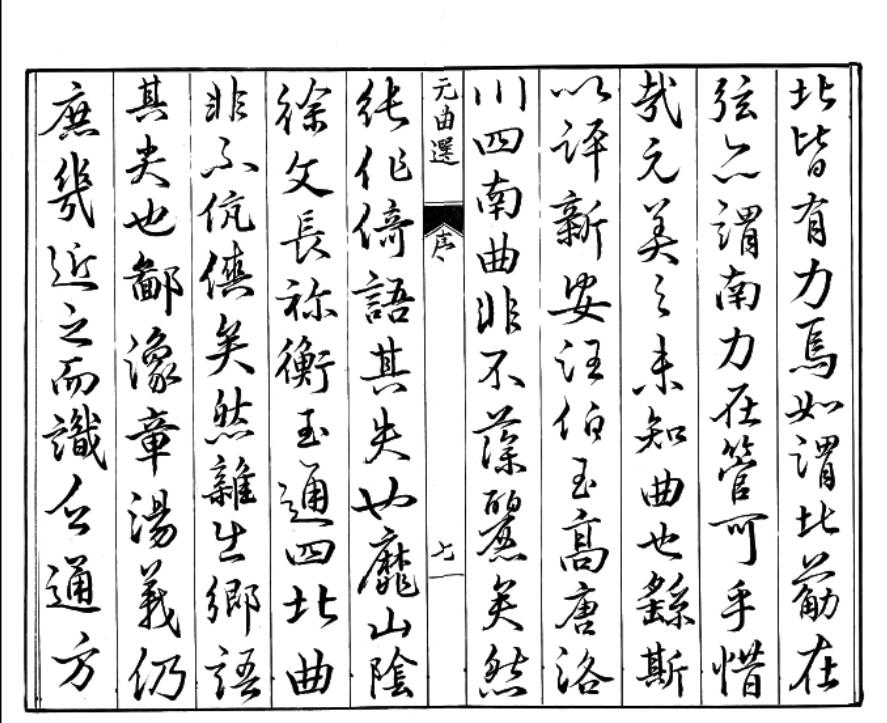 北皆有力焉如謂北筋在
弦亦謂南力在管可乎惜
哉元美之未知曲也繇斯
以評新安汪伯玉高唐洛
川四南曲非不藻麗矣然
元曲選
序
七
純作綺語其失也靡山陰
徐文長祢衡玉通四北曲
非不伉俠矣然雜出鄉語
其失也鄙豫章湯義仍
庶幾近之而識乏通方